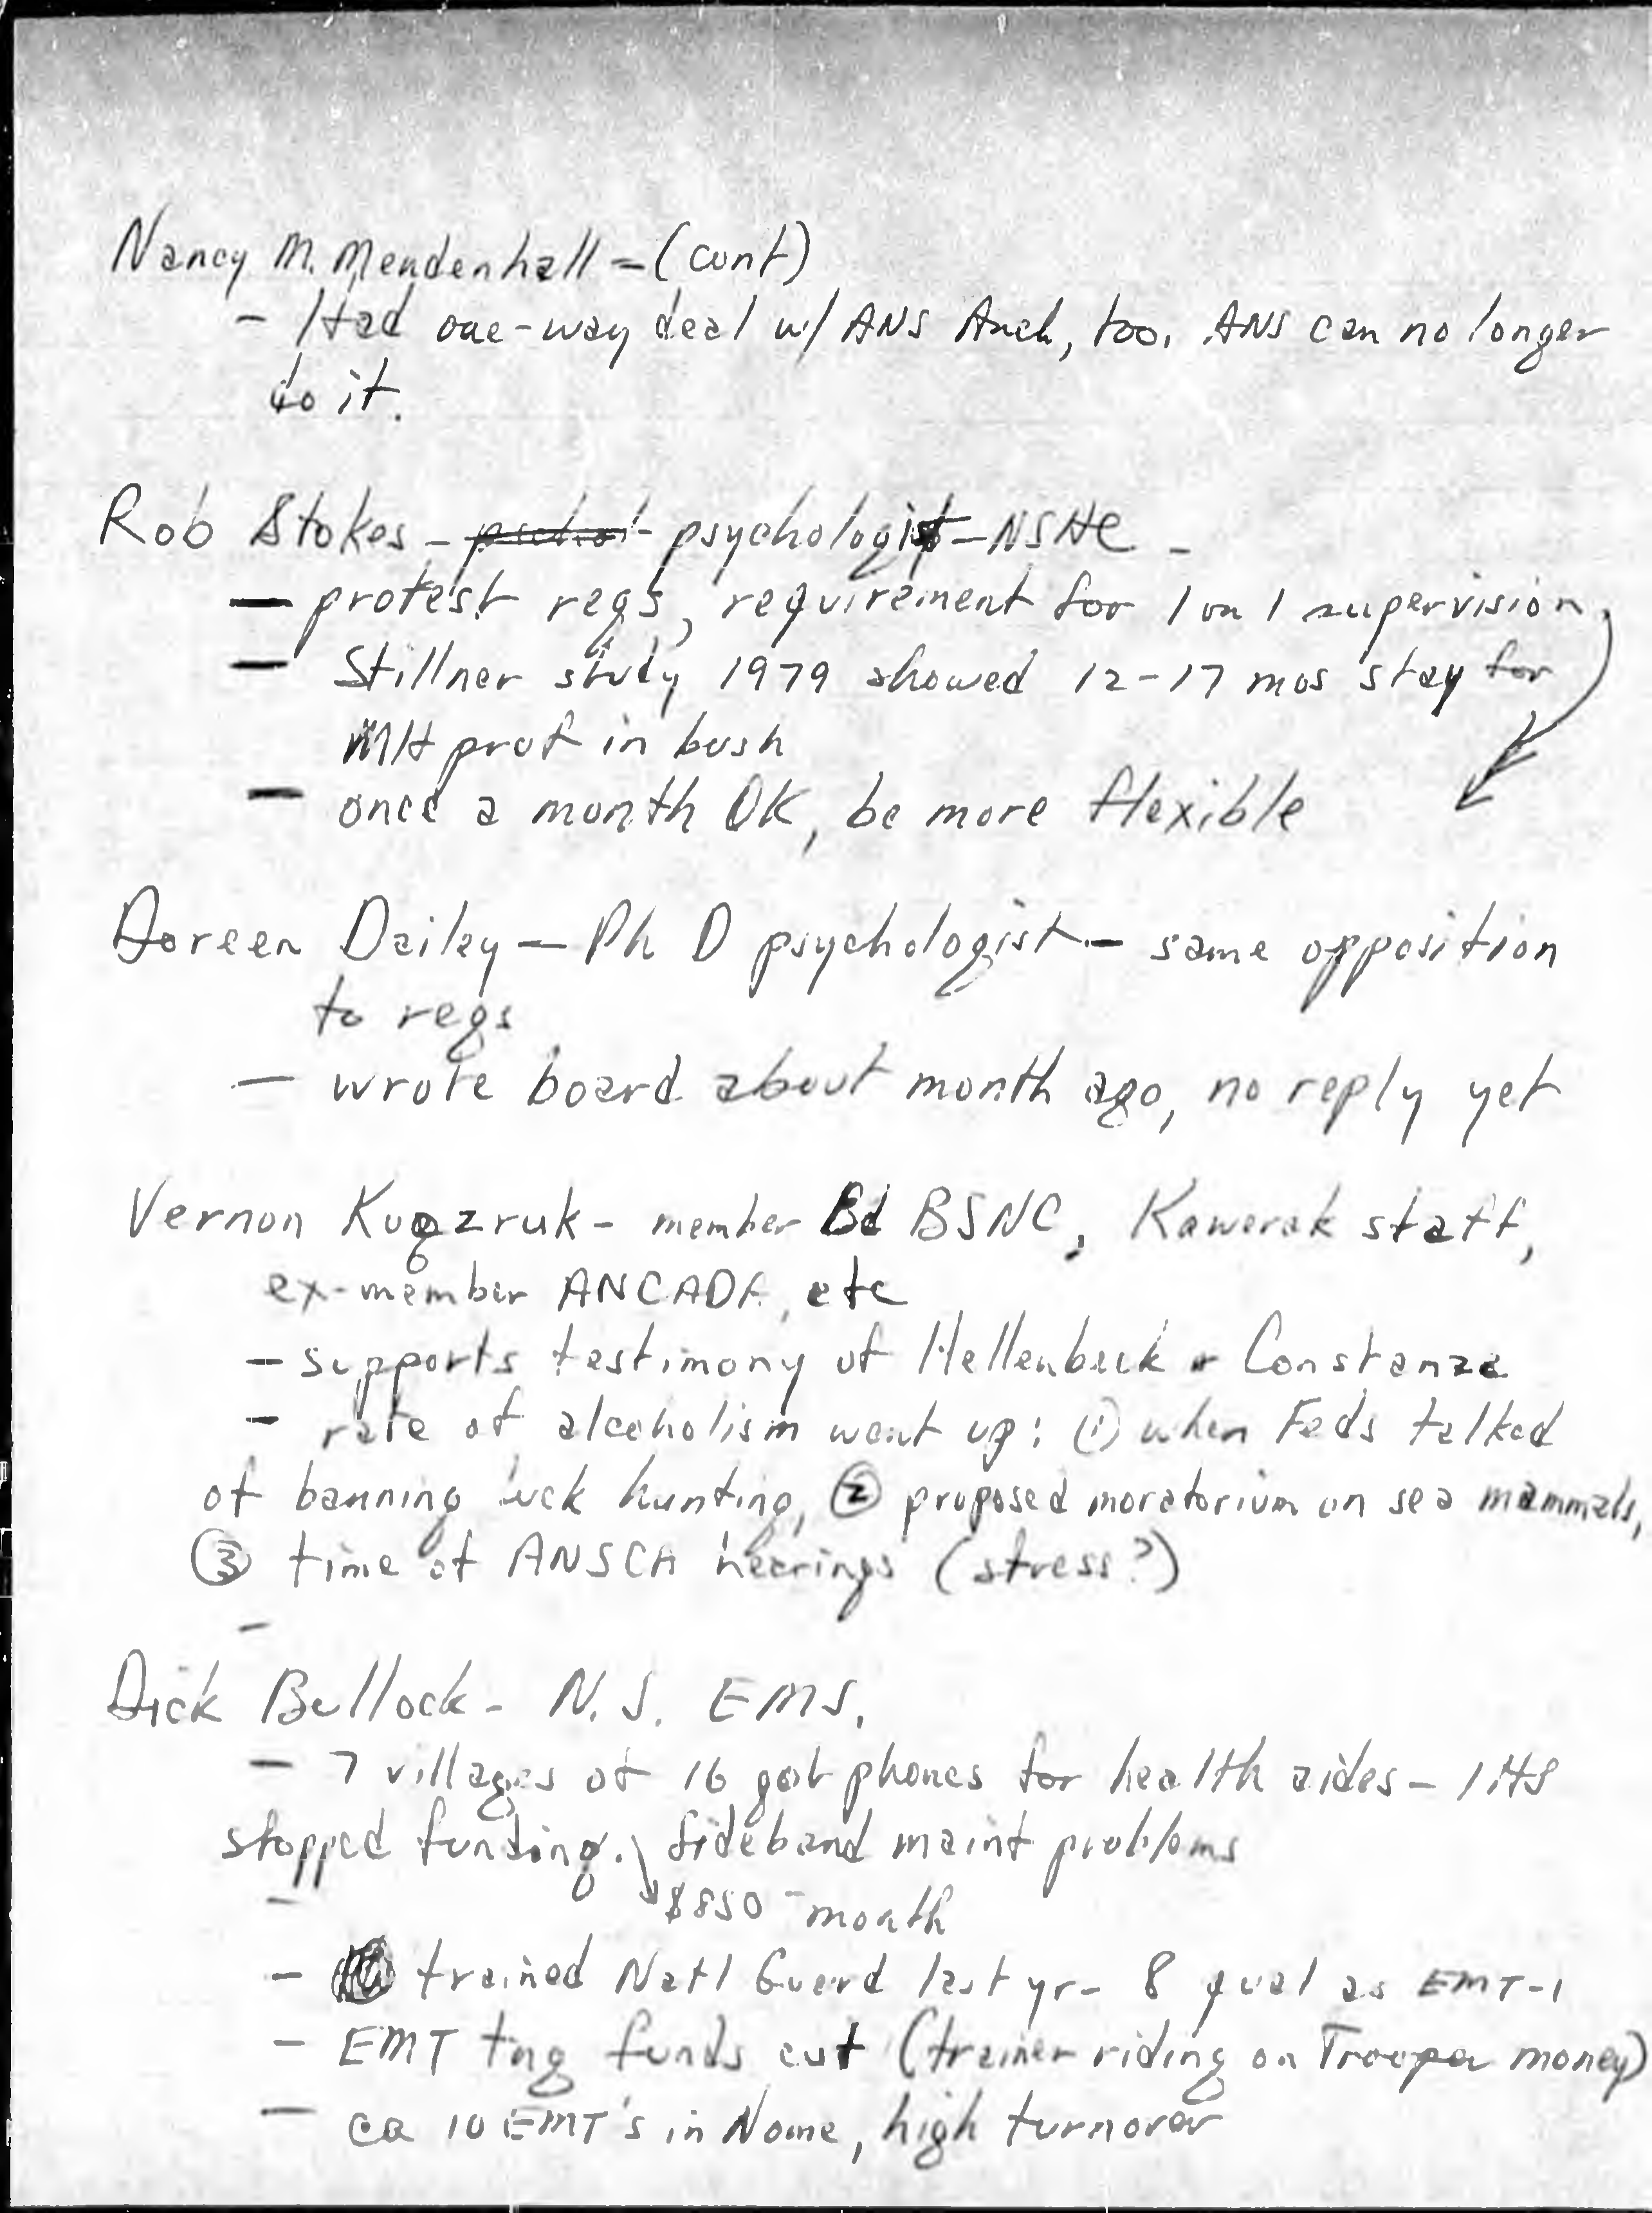 Nancy M. Mendenhall - (cont)
- Had one-way deal w/ ANS Anch, too. ANS can no longer
do it.
Rob Stokes - psychologist - NSHC -
- protest regs, requirement for 1 on 1 supervision,
- Stillner study 1979 showed 12-17 mos stay for
MH prof in bush
- once a month OK, be more flexible
Doreen Dailey - Ph D psychologist - same opposition
to regs
- wrote board about month ago, no reply yet
Vernon Kugzruk - member Bd BSNC, Kawerak staff,
ex-member ANCADA, etc
- supports testimony of Hellenbeck & Constanza
- rate of alcoholism went up: ① when Feds talked
of banning duck hunting, ② proposed moratorium on sea mammals,
③ time of ANSCA hearings (stress?)
-
Dick Bullock - N.S. EMS,
- 7 villages of 16 got phones for health aides - IHS
stopped funding. Sideband maint problems
- $850 - month
- trained Natl Guard last yr - 8 qual as EMT-1
- EMT tng funds cut (trainer riding on Trooper money)
- ca 10 EMT's in Nome, high turnover